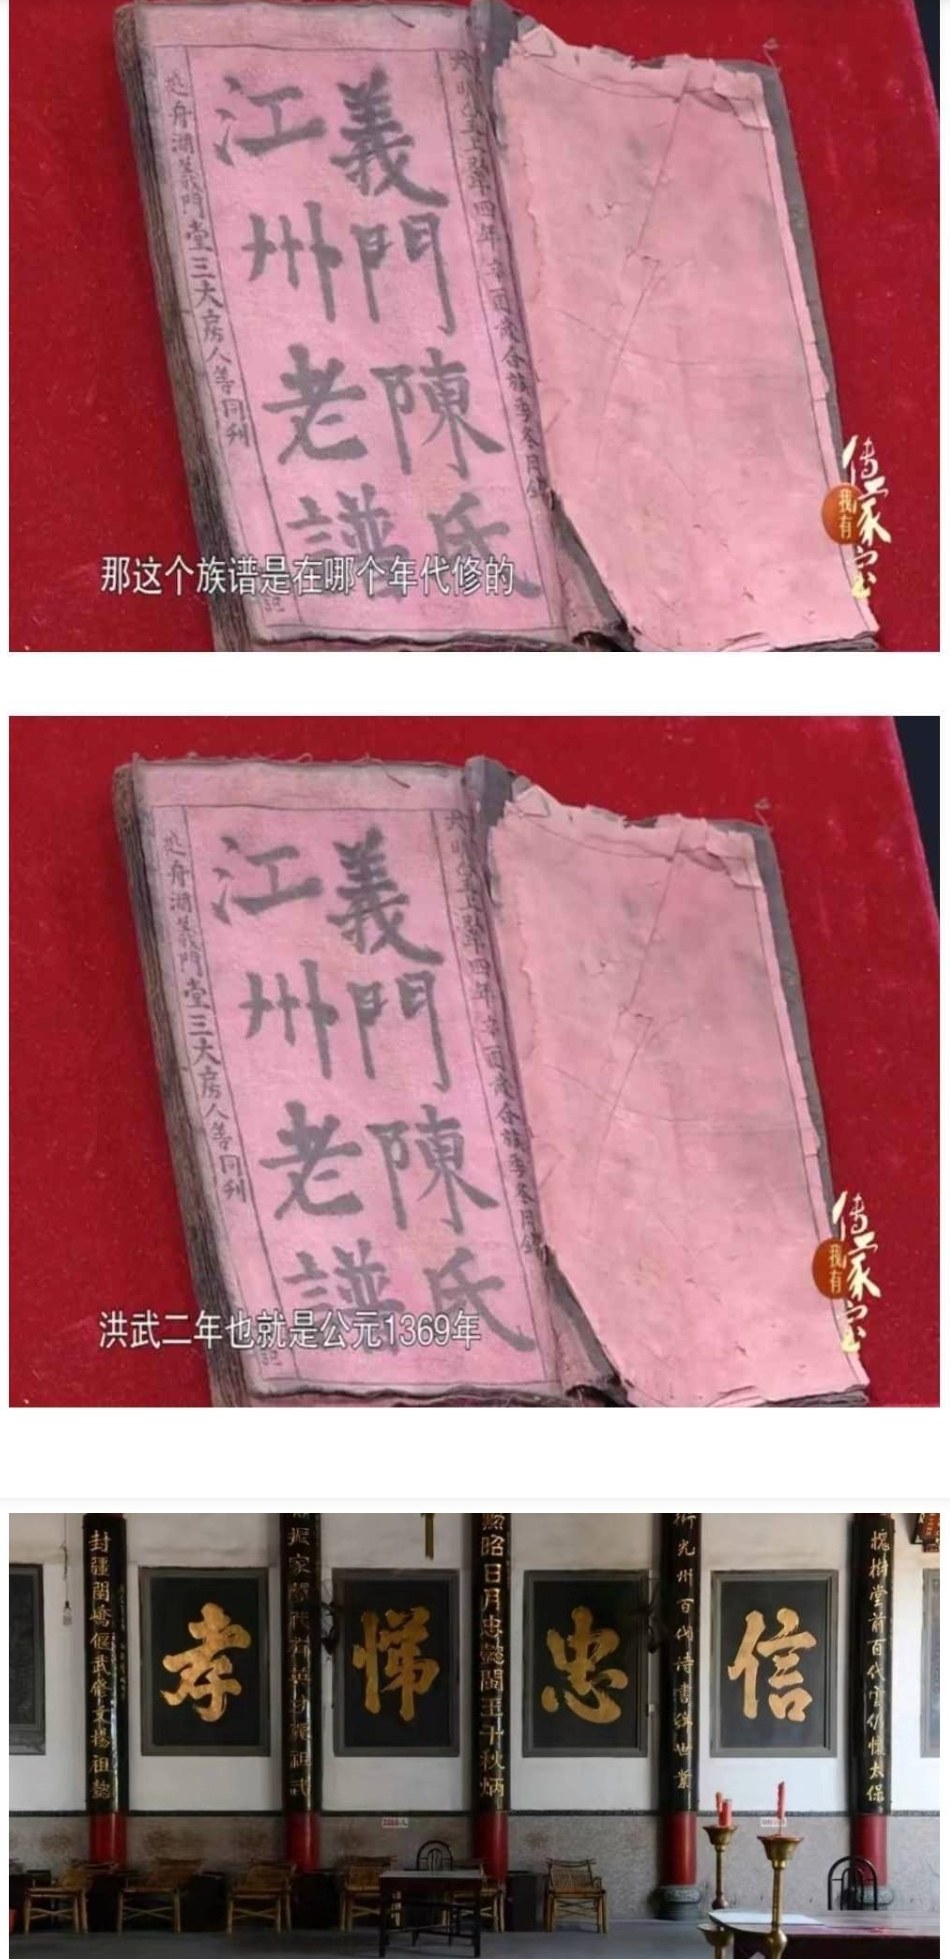 義門陳氏
江州老譜
四年辛酉歲合族季冬月
舟湖義門堂三大房人等同刊
那这个族谱是在哪个年代修的
我有
传家宝
義門陳氏
江州老譜
四年辛酉歲合族季冬月
舟湖義門堂三大房人等同刊
洪武二年也就是公元1369年
我有
传家宝
孝
悌
忠
信
封疆閩嶠偃武修文揚祖懿
昭日月忠懿閩王千秋炳
光州百代詩書紹世業
槐樹堂前百代